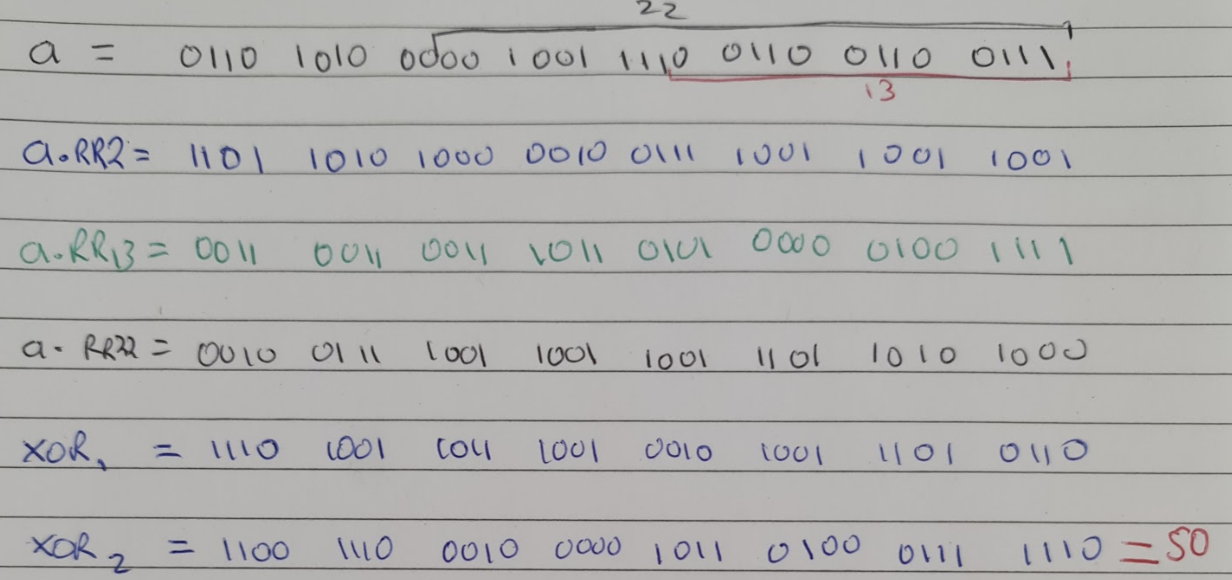 22
a = 0110 1010 0000 1001 1110 0110 0110 0111
13
a.RR2 = 1101 1010 1000 0010 0111 1001 1001 1001
a.RR13 = 0011 0011 0011 1011 0101 0000 0100 1111
a. RR22 = 0010 0111 1001 1001 1001 1101 1010 1000
XOR1 = 1110 1001 1011 1001 0010 1001 1101 0110
XOR2 = 1100 1110 0010 0000 1011 0100 0111 1110 = S0